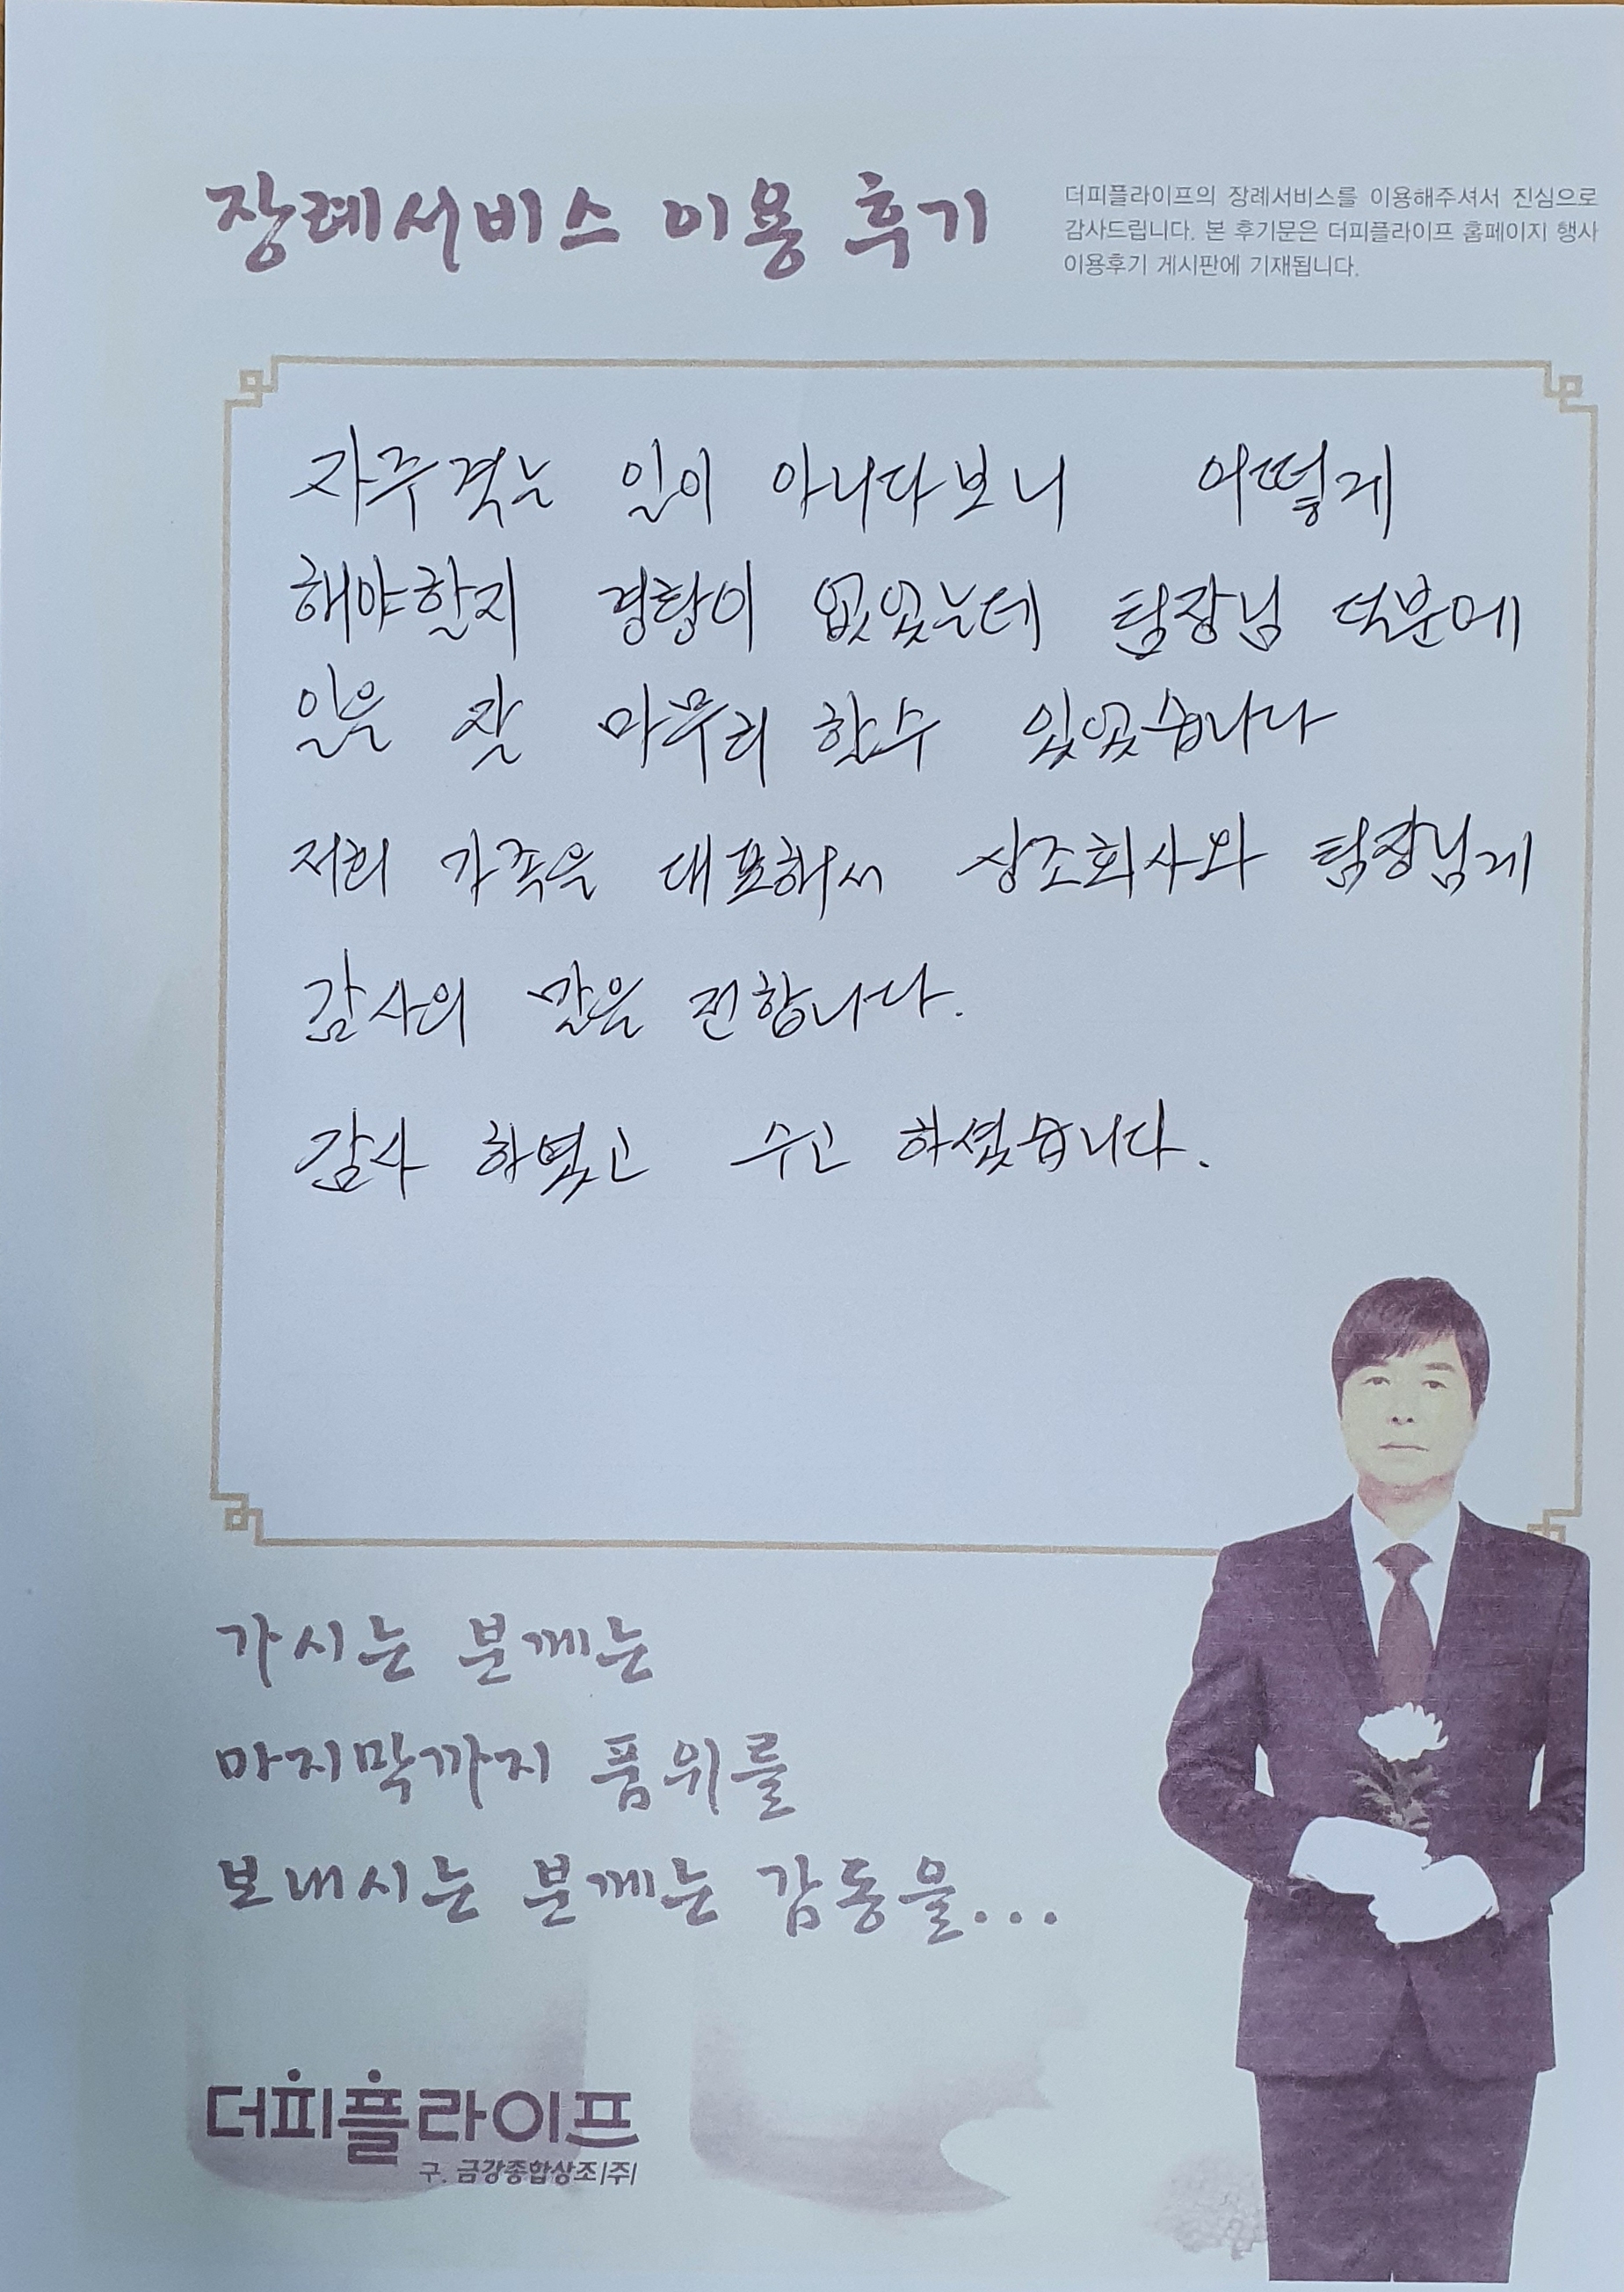 장례서비스 이용 후기
더피플라이프의 장례서비스를 이용해주셔서 진심으로
감사드립니다. 본 후기문은 더피플라이프 홈페이지 행사
이용후기 게시판에 기재됩니다.
자주겪는 일이 아니다보니 어떻게
해야할지 경황이 없었는데 팀장님 덕분에
일을 잘 마무리 할수 있었습니다
저희 가족을 대표해서 상조회사와 팀장님께
감사의 말을 전합니다.
감사 하였고 수고 하셨습니다.
가시는 분께는
마지막까지 품위를
보내시는 분께는 감동을...
더피플라이프
구. 금강종합상조|주|